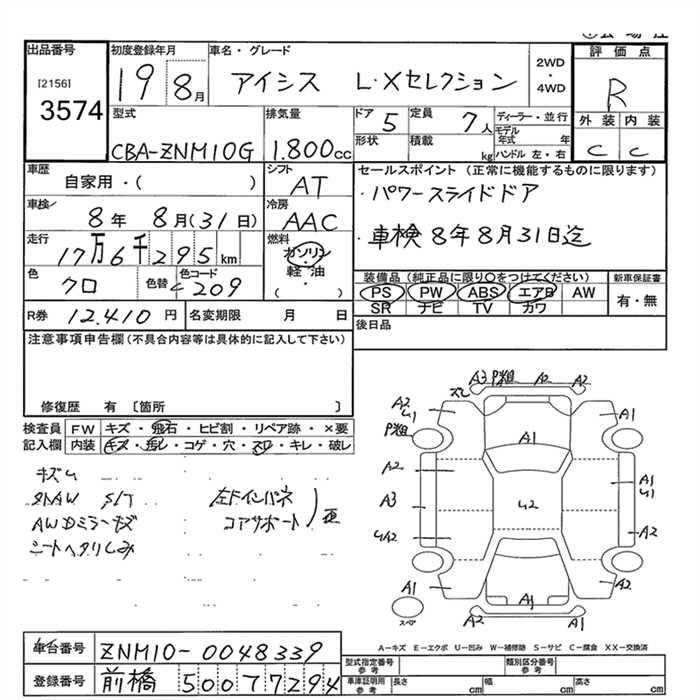 出品番号
[2156]
3574
初度登録年月
19 8月
車名・グレード
アイシス L・Xセレクション
2WD
・
4WD
評価点
R
外装 内装
C C
型式
CBA-ZNM10G
排気量
1.800cc
ドア
5
定員
7人
形状
積載
kg
ディーラー・並行
モデル年式 年
ハンドル 左・右
車歴
自家用・( )
シフト
AT
セールスポイント (正常に機能するものに限ります)
・パワースライドドア
・車検8年8月31日迄
車検
8年 8月(31日)
冷房
AAC
走行
17万6千295km
燃料
ガソリン
・
軽油
( )
色
クロ
色替
色コード
209
装備品(純正品に限り○をつけてください)
PS PW ABS エアB AW
SR ナビ TV カワ
新車保証書
有・無
R券 12.410円
名変期限 月 日
後日品
注意事項申告欄(不具合内容等は具体的に記入して下さい)
修復歴 有 〔箇所 〕
検査員記入欄
FW キズ・飛石・ヒビ割・リペア跡・×要
内装 キズ・汚レ・コゲ・穴・スレ・キレ・破レ
AWDミラーキズ
シートヘタリしみ
左Fインパネ
コアサポート
A3 P粗 A2 A2
ズレ
A2
U1
P粗
A1
A1
A2
A1
U1
A3
U2
UA2
A2
A1
A1
A2
スペア
A1
A2
A-キズ E-エクボ U-凹み W-補修跡 S-サビ C-腐食 XX-交換済
車台番号 ZNM10-0048339
登録番号 前橋 500 7 7294
型式指定番号
参考
類別区分番号
参考
車庫証明用
参考
長さ cm
幅 cm
高さ cm